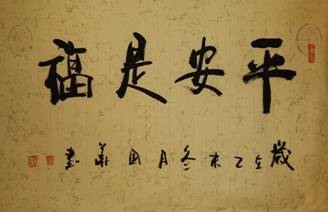 平安是福
歲在乙未冬月国華書